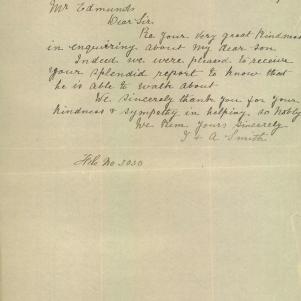 Mr Edmunds
Dear Sir.
Re Your Very great Kindness
in enquiring about my dear son
Indeed we were pleased to receive
Your splendid report to know that
he is able to walk about
We Sincerely thank You for Your
Kindness & sympathy in helping so Nobly
We Rem Yours Sincerely
J & A Smith
File No 3030